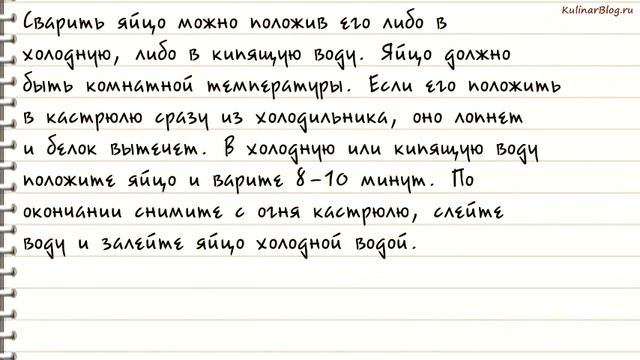 KulinarBlog.ru
Сварить яйцо можно положив его либо в
холодную, либо в кипящую воду. Яйцо должно
быть комнатной температуры. Если его положить
в кастрюлю сразу из холодильника, оно лопнет
и белок вытечет. В холодную или кипящую воду
положите яйцо и варите 8-10 минут. По
окончании снимите с огня кастрюлю, слейте
воду и залейте яйцо холодной водой.